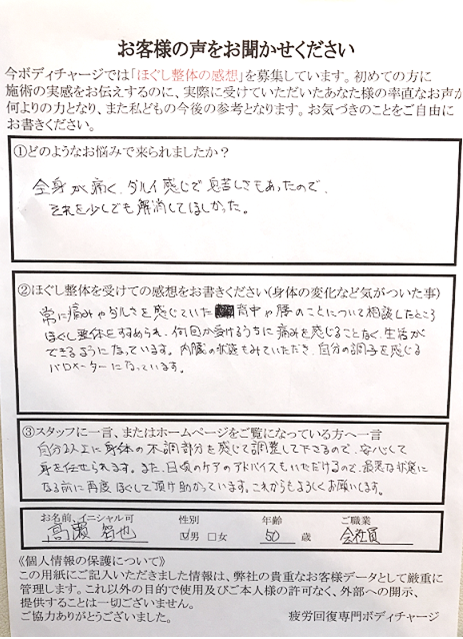 お客様の声をお聞かせください
今ボディチャージでは「ほぐし整体の感想」を募集しています。初めての方に
施術の実感をお伝えするのに、実際に受けていただいたあなた様の率直なお声が
何よりの力となり、また私どもの今後の参考となります。お気づきのことをご自由に
お書きください。
①どのようなお悩みで来られましたか？
全身が痛く、ダルイ感じで息苦しさもあったので、
それを少しでも解消してほしかった。
②ほぐし整体を受けての感想をお書きください(身体の変化など気がついた事)
常に痛みやダルさを感じていた 背中や腰のことについて相談したところ
ほぐし整体をすすめられ、何回か受けるうちに痛みを感じることなく生活が
できるようになっています。内臓の状態もみていただき、自分の調子を感じる
バロメーターになっています。
③スタッフに一言、またはホームページをご覧になっている方へ一言
自分以上に身体の不調部分を感じて調整して下さるので、安心して
身を任せられます。また、日頃のケアのアドバイスもいただけるので、最悪な状態に
なる前に再度ほぐして頂け助かっています。これからもよろしくお願いします。
お名前、イニシャル可 性別 年齢 ご職業
高瀬 智也 ☑男 □女 50 歳 会社員
《個人情報の保護について》
この用紙にご記入いただきました情報は、弊社の貴重なお客様データとして厳重に
管理します。これ以外の目的で使用及びご本人様の許可なく、外部への開示、
提供することは一切ございません。
ご協力ありがとうございました。 疲労回復専門ボディチャージ